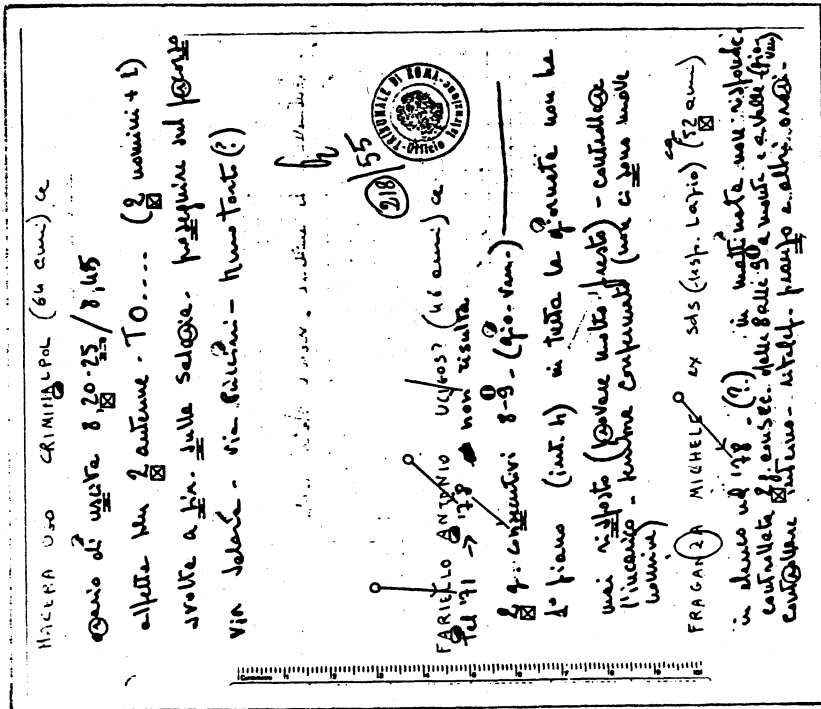 MACERA UGO CRIMINALPOL (64 anni) ca
orario di uscita 8,20-25/8,45
alfetta blu 2 antenne - TO.... (2 uomini + L)
svolta a sin. sulla salaria. proseguire sul percorso
via Salaria - via Puccini - Muro Torto (?)
218/55
TRIBUNALE DI ROMA - Ufficio Istruzione
FARIELLO ANTONIO UCIGOS? (46 anni) ca
Tel '71 → '78 non risulta
2 g. consecutivi 8-9 - (gio. ven.)
1° piano (int. 4) in tutta la giornata non ha
mai risposto (provare molto presto) - controllare
l'incarico - numero confermato (non ci sono nuove
nomine)
FRAGANZA MICHELE ex sds (isp. Lazio) (52 anni) ca
in elenco nel '78 - (?.) in mattinata non risponde.
controllata 2 g. consec. dalle 8 alle 9 a monte e a valle (gio ven)
controllare interno - pranzo e altri orari -
Centimetri 1 2 3 4 5 6 7 8 9 10